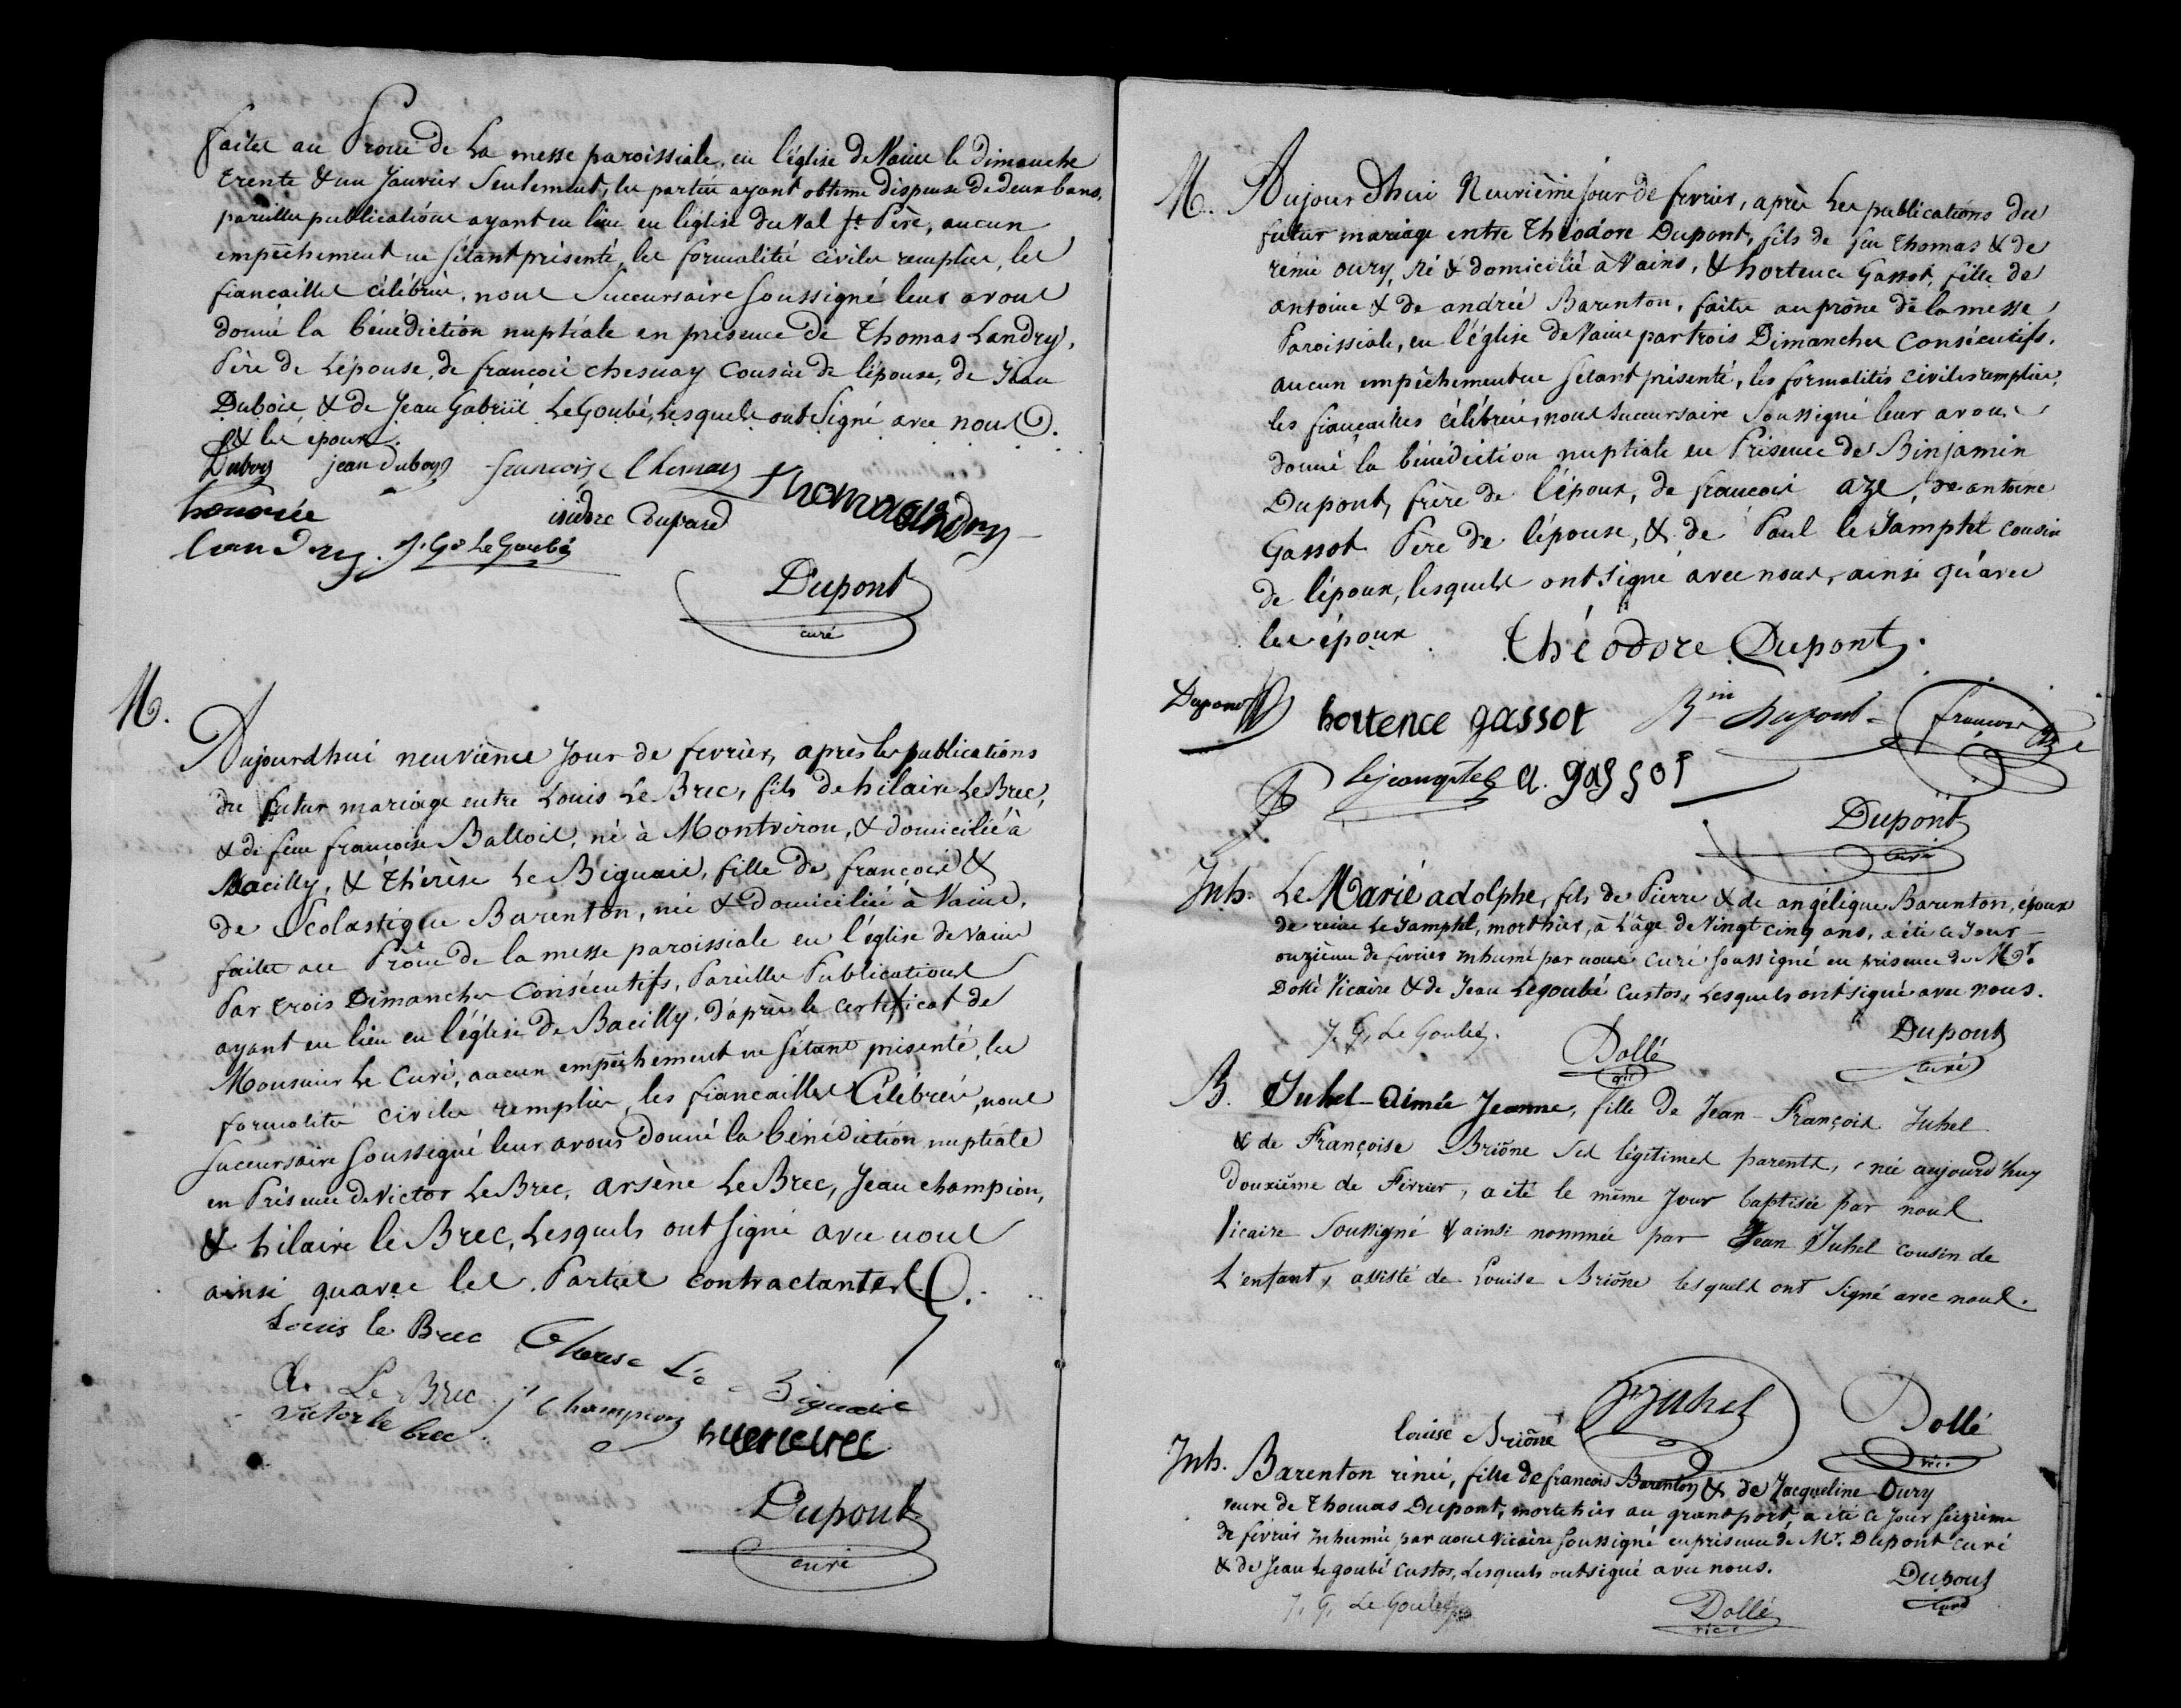 faites au Prone de La messe paroissiale, en l'église de Vains le dimanche
trente & un Janvier Seulement, les parties ayant obtenu dispense de deux bans,
pareilles publications ayant eu lieu en l'église du Val St Père, aucun
empêchement ne s'étant présenté, les formalités civiles remplies, les
fiancailles célébrées, nous Succursaire Soussigné leur avons
donné la bénédiction nuptiale en présence de Thomas Landry,
Père de L'épouse, de françois chesnay Cousin de l'épouse, de Jean
Dubois, & de Jean Gabriel LeGoubé, Lesquels ont Signé avec nous
& les époux.
Duboys jean duboys francoise Chesnay thomas landry
honorée
isidore
landry. J. G. Le Goubé
Dupont
curé
M.
Aujourdhui neuvième Jour de fevrier, après les publications
du futur mariage entre Louis Le Brec, fils de hilaire Le Brec,
& de feue francoise Ballois, né à Montviron, & domicilié à
Bacilly, & thérèse Le Biguais, fille de françois &
de Scolastique Barenton, née & domiciliée à Vains,
faites au Prône de la messe paroissiale en l'église de Vains
Par trois Dimanches Consécutifs, Pareilles Publications
ayant eu lieu en l'église de Bacilly, d'après le certificat de
Monsieur Le Curé, aucun empêchement ne s'étant présenté, les
formalités civiles remplies, les fiancailles Célébrées, nous
Succursaire Soussigné leur avons donné la bénédiction nuptiale
en Présence de Victor Le Brec, arsène Le Brec, Jean champion,
& hilaire le Brec, Lesquels ont Signé avec nous
ainsi quavec les Parties contractantes.
Louis le Brec Therese Le Biguais
A. Le Brec j. Champion
Victor le brec
Dupont
curé
M. Aujourdhui Neuvième jour de fevrier, après Les publications du
futur mariage entre Théodore Dupont, fils de feu Thomas & de
rénée oury, né & domicilié à Vains, & hortence Gassot, fille de
antoine & de andrée Barenton, faites au prône de la messe
Paroissiale, en l'église de Vains par trois Dimanches Consécutifs,
aucun empêchement ne s'étant présenté, les formalités civiles remplies,
les fiançailles célébrées, nous Succursaire Soussigné leur avons
donné la bénédiction nuptiale en Présence de Binjamin
Dupont, frère de l'époux, de françois aze, de antoine
Gassot Père de l'épouse, & de Paul le Jamptel cousin
de l'époux, lesquels ont signé avec nous, ainsi qu'avec
les époux. Théodore Dupont.
Dupont hortence gassot Bin Dupont françois Aze
lejamptel a. gassot
Dupont
curé
Inh. Le Marié adolphe, fils de Pierre & de angélique Barenton, époux
de reine Le Jamptel, mort hier, à l'âge de Vingt cinq ans, a été ce Jour
onzième de fevrier inhumé par nous curé soussigné en présence de Mr.
Dollé Vicaire & de Jean Legoubé Custos, Lesquels ont signé avec nous.
J. G. Le Goubé.
Dollé
vic
Dupont
curé
B. Juhel Aimée Jeanne, fille de Jean-François Juhel
& de Françoise Briône Ses légitimes parents, née aujourd'huy
Douxième de Février, a été le même Jour baptisée par nous
Vicaire Soussigné & ainsi nommée par Jean Juhel cousin de
L'enfant, assisté de Louise Briône lesquels ont Signé avec nous.
louise Briône Juhel Dollé
vic.
Inh. Barenton rénée, fille de francois Barenton & de Jacqueline Oury
veuve de Thomas Dupont, morte hier au grant port, a été ce jour seizième
de février inhumée par nous Vicaire Soussigné en présence de Mr. Dupont curé
& de Jean Legoubé Custos, Lesquels ont signé avec nous.
J. G. Le Goubé
Dollé
vic.
Dupont
curé